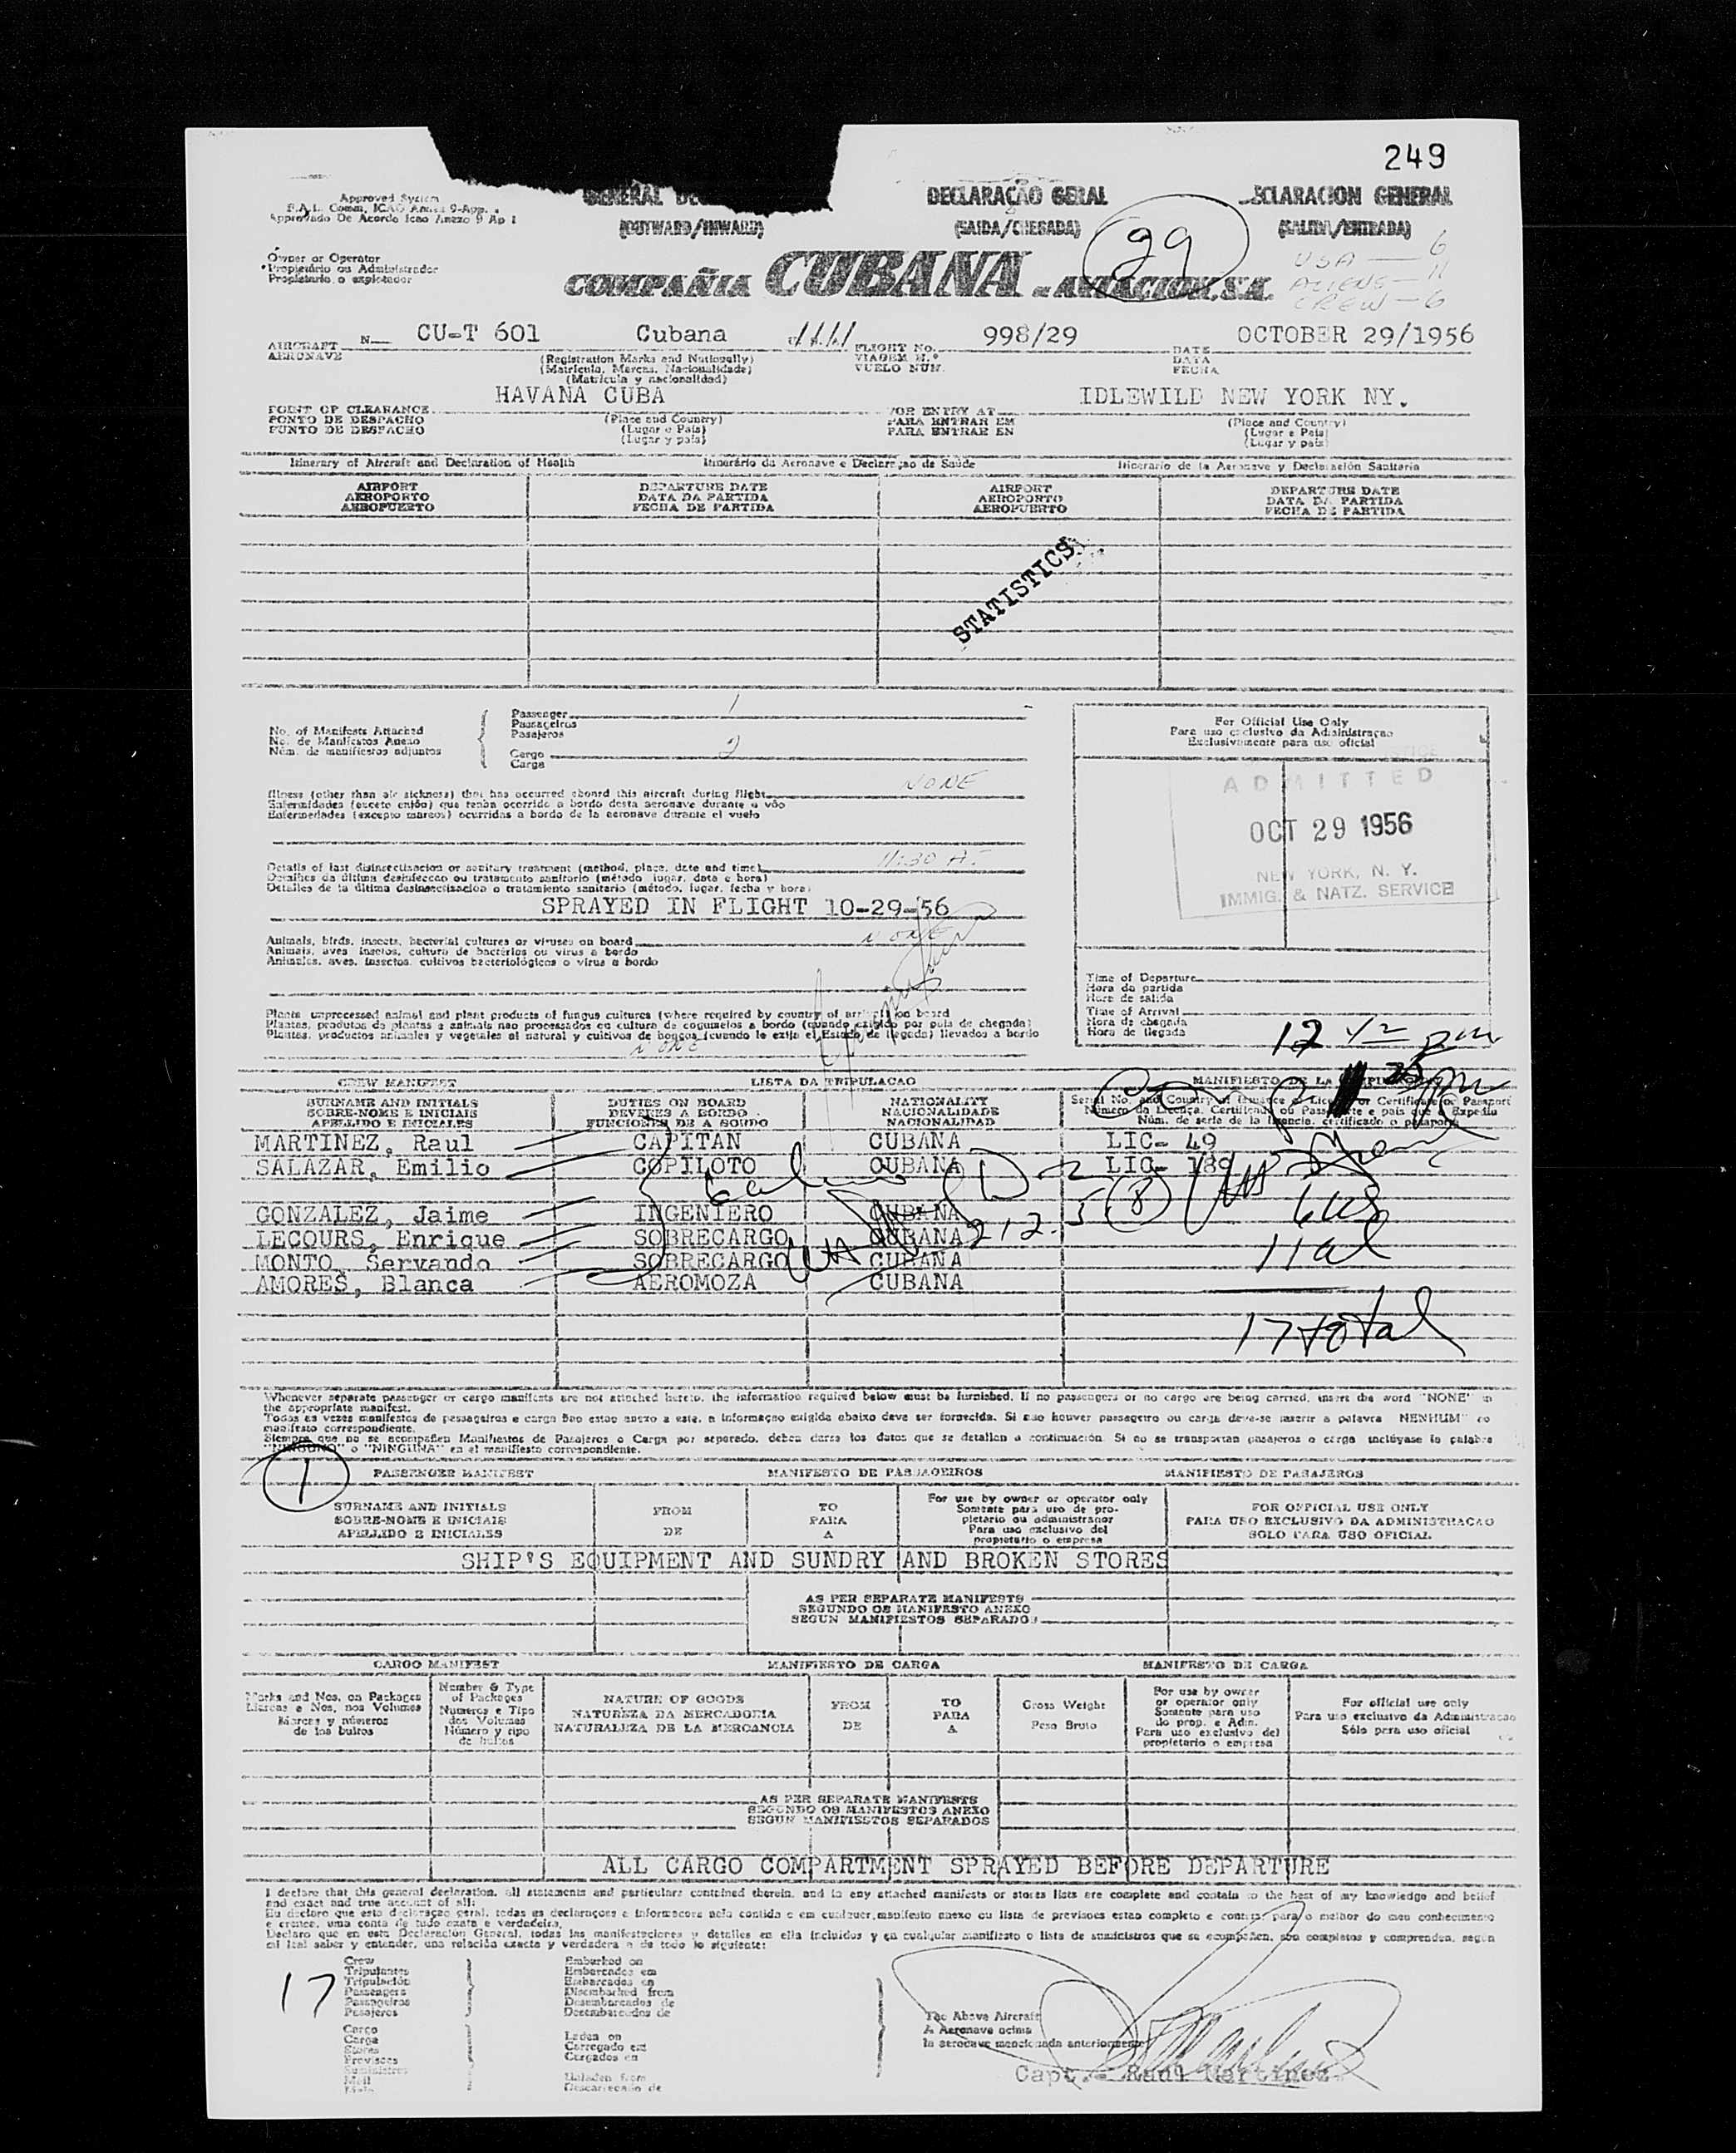 249
Approved System
E.A.L. Comm. ICAO Annex 9-App.
Approvado De Acordo Icao Anexo 9 Ap 1
GENERAL
DECLARAÇÃO GERAL
DECLARACION GENERAL
(OUTWARD/INWARD)
(SAIDA/CHEGADA)
(SALIDA/ENTRADA)
29
USA — 6
ALIENS — 11
CREW — 6
Owner or Operator
Propietário ou Administrador
Propietario o explotador
COMPAÑIA CUBANA DE AVIACION, S.A.
AIRCRAFT N. CU-T 601 Cubana FLIGHT No. 998/29 DATE OCTOBER 29/1956
AERONAVE
(Registration Marks and Nationality)
(Matricula, Marcas, Nacionalidade)
(Matrícula y nacionalidad)
VIAGEM N.º
VUELO NUM.
DATA
FECHA
POINT OF CLEARANCE HAVANA CUBA FOR ENTRY AT IDLEWILD NEW YORK NY.
PONTO DE DESPACHO
PUNTO DE DESPACHO
(Place and Country)
(Lugar e Pais)
(Lugar y país)
PARA ENTRAR EM
PARA ENTRAR EN
(Place and Country)
(Lugar e Pais)
(Lugar y país)
Itinerary of Aircraft and Declaration of Health
Itinerário da Aeronave e Declaraçao de Saúde
Itinerario de la Aeronave y Declaración Sanitaria
AIRPORT
AEROPORTO
AEROPUERTO
DEPARTURE DATE
DATA DA PARTIDA
FECHA DE PARTIDA
AIRPORT
AEROPORTO
AEROPUERTO
DEPARTURE DATE
DATA DA PARTIDA
FECHA DE PARTIDA
STATISTICS
No. of Manifests Attached
No. de Manifestos Anexo
Núm. de manifiestos adjuntos
Passenger 1
Passageiros
Pasajeros
Cargo 2
Carga
Illness (other than air sickness) that has occurred aboard this aircraft during flight NONE
Enfermidades (exceto enjôo) que tenha ocorrido a bordo desta aeronave durante o vôo
Enfermedades (excepto mareos) ocurridas a bordo de la aeronave durante el vuelo
Details of last disinsectisacion or sanitary treatment (method, place, date and time) 11:30 A.
Detalhes da última desinfeccão ou tratamento sanitario (método, lugar, data e hora)
Detalles de la última desinsectisacion o tratamiento sanitario (método, lugar, fecha y hora)
SPRAYED IN FLIGHT 10-29-56
Animals, birds, insects, bacterial cultures or viruses on board NONE
Animais, aves insetos, cultura de bactérias ou virus a bordo
Animales, aves, insectos, cultivos bacteriológicos o virus a bordo
Plants unprocessed animal and plant products of fungus cultures (where required by country of arrival) on board
Plantas, produtos de plantas e animais nao processados ou cultura de cogumelos a bordo (quando exigido por pais de chegada)
Plantas, productos animales y vegetales al natural y cultivos de hongos (cuando lo exija el Estado de llegada) llevados a bordo
NONE
For Official Use Only
Para uso exclusivo da Administraçao
Exclusivamente para uso oficial
ADMITTED
OCT 29 1956
NEW YORK, N. Y.
IMMIG. & NATZ. SERVICE
Time of Departure
Hora da partida
Hora de salida
Time of Arrival
Hora da chegada
Hora de llegada
12 42 pm
CREW MANIFEST
LISTA DA TRIPULACAO
MANIFIESTO DE LA
SURNAME AND INITIALS
SOBRE-NOME E INICIAIS
APELLIDO E INICIALES
DUTIES ON BOARD
DEVERES A BORDO
FUNCIONES DE A BORDO
NATIONALITY
NACIONALIDADE
NACIONALIDAD
Serial No. and Country of Issuance of License or Certificate or Passport
Número da Licença, Certificado ou Passaporte e pais que o Expediu
Núm. de serie de la licencia, certificado o pasaporte
MARTINEZ, Raul CAPITAN CUBANA LIC- 49
SALAZAR, Emilio COPILOTO CUBANA LIC- 189
GONZALEZ, Jaime INGENIERO CUBANA
LECOURS, Enrique SOBRECARGO CUBANA
MONTO, Servando SOBRECARGO CUBANA
AMORES, Blanca AEROMOZA CUBANA
D-2
212.5 (8)
6 us
11 al
17 total
Whenever separate passenger or cargo manifests are not attached hereto, the information required below must be furnished. If no passengers or no cargo are being carried, insert the word "NONE" in
the appropriate manifest.
Todas as vezes manifestos de passageiros e carga nao estao anexo a este, a informaçao exigida abaixo deve ser fornecida. Si nao houver passageiro ou carga deve-se inserir a palavra NENHUM" no
manifesto correspondiente.
Siempre que no se acompañen Manifiestos de Pasajeros o Carga por separado, deben darse los datos que se detallan a continuación. Si no se transportan pasajeros o carga inclúyase la palabra
"NINGUNO" o "NINGUNA" en el manifiesto correspondiente.
1
PASSENGER MANIFEST
MANIFESTO DE PASSAGEIROS
MANIFIESTO DE PASAJEROS
SURNAME AND INITIALS
SOBRE-NOME E INICIAIS
APELLIDO E INICIALES
FROM
DE
TO
PARA
A
For use by owner or operator only
Somente para uso de pro-
pietario ou administrador
Para uso exclusivo del
propietario o empresa
FOR OFFICIAL USE ONLY
PARA USO EXCLUSIVO DA ADMINISTRACAO
SOLO PARA USO OFICIAL
SHIP'S EQUIPMENT AND SUNDRY AND BROKEN STORES
AS PER SEPARATE MANIFESTS
SEGUNDO OS MANIFESTO ANEXO
SEGUN MANIFIESTOS SEPARADOS
CARGO MANIFEST
MANIFIESTO DE CARGA
MANIFESTO DE CARGA
Marks and Nos. on Packages
Marcas e Nos. nos Volumes
Marcas y números
de los bultos
Number & Type
of Packages
Numeros e Tipo
dos Volumes
Número y tipo
de bultos
NATURE OF GOODS
NATUREZA DA MERCADORIA
NATURALEZA DE LA MERCANCIA
FROM
DE
TO
PARA
A
Gross Weight
Peso Bruto
For use by owner
or operator only
Somente para uso
do prop. e Adm.
Para uso exclusivo del
propietario o empresa
For official use only
Para uso exclusivo da Administracao
Sólo para uso oficial
AS PER SEPARATE MANIFESTS
SEGUNDO OS MANIFESTOS ANEXO
SEGUN MANIFIESTOS SEPARADOS
ALL CARGO COMPARTMENT SPRAYED BEFORE DEPARTURE
I declare that this general declaration, all statements and particulars contained therein, and in any attached manifests or stores lists are complete and contain to the best of my knowledge and belief
and exact and true account of all:
Eu declaro que esta declaraçao geral, todas as declaraçoes e informacoes nela contida e em cualquer manifesto anexo ou lista de previsoes estao completo e contem para o melhor do meu conhecimento
e crence, uma conta de tudo exata e verdadeira.
Declaro que en esta Declaración General, todas las manifestaciones y detalles en ella incluidos y en cualquier manifiesto o lista de suministros que se acompañen, son completos y comprenden, según
mi leal saber y entender, una relación exacta y verdadera de todo lo siguiente:
17
Crew
Tripulantes
Tripulación
Passengers
Passageiros
Pasajeros
Cargo
Carga
Stores
Provisoes
Suministros
Mail
Embarked on
Embarcados em
Embarcados en
Disembarked from
Desembarcados de
Desembarcados de
Laden on
Carregado em
Cargados en
Unladen from
Descarregado de
The Above Aircraft
A Aeronave acima
la aeronave mencionada anteriormente
Capt.- Raul Martinez